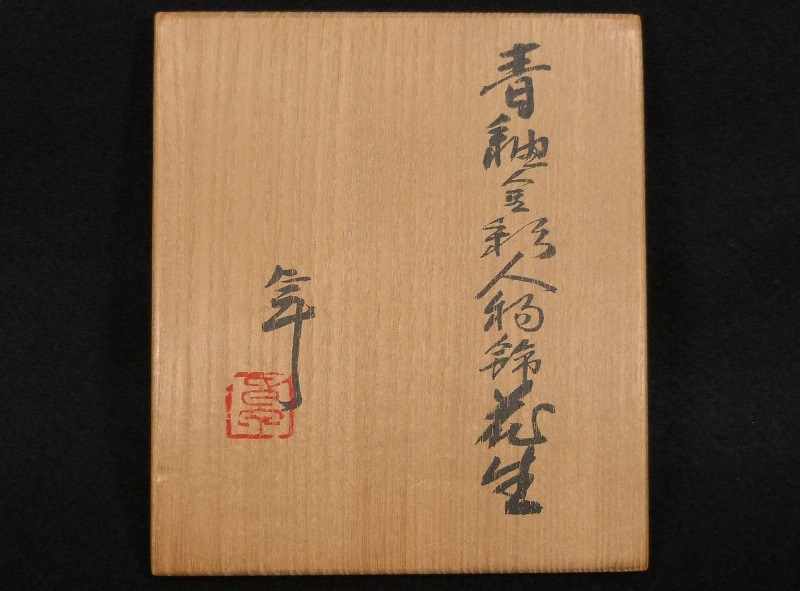 青釉金彩人物飾花生